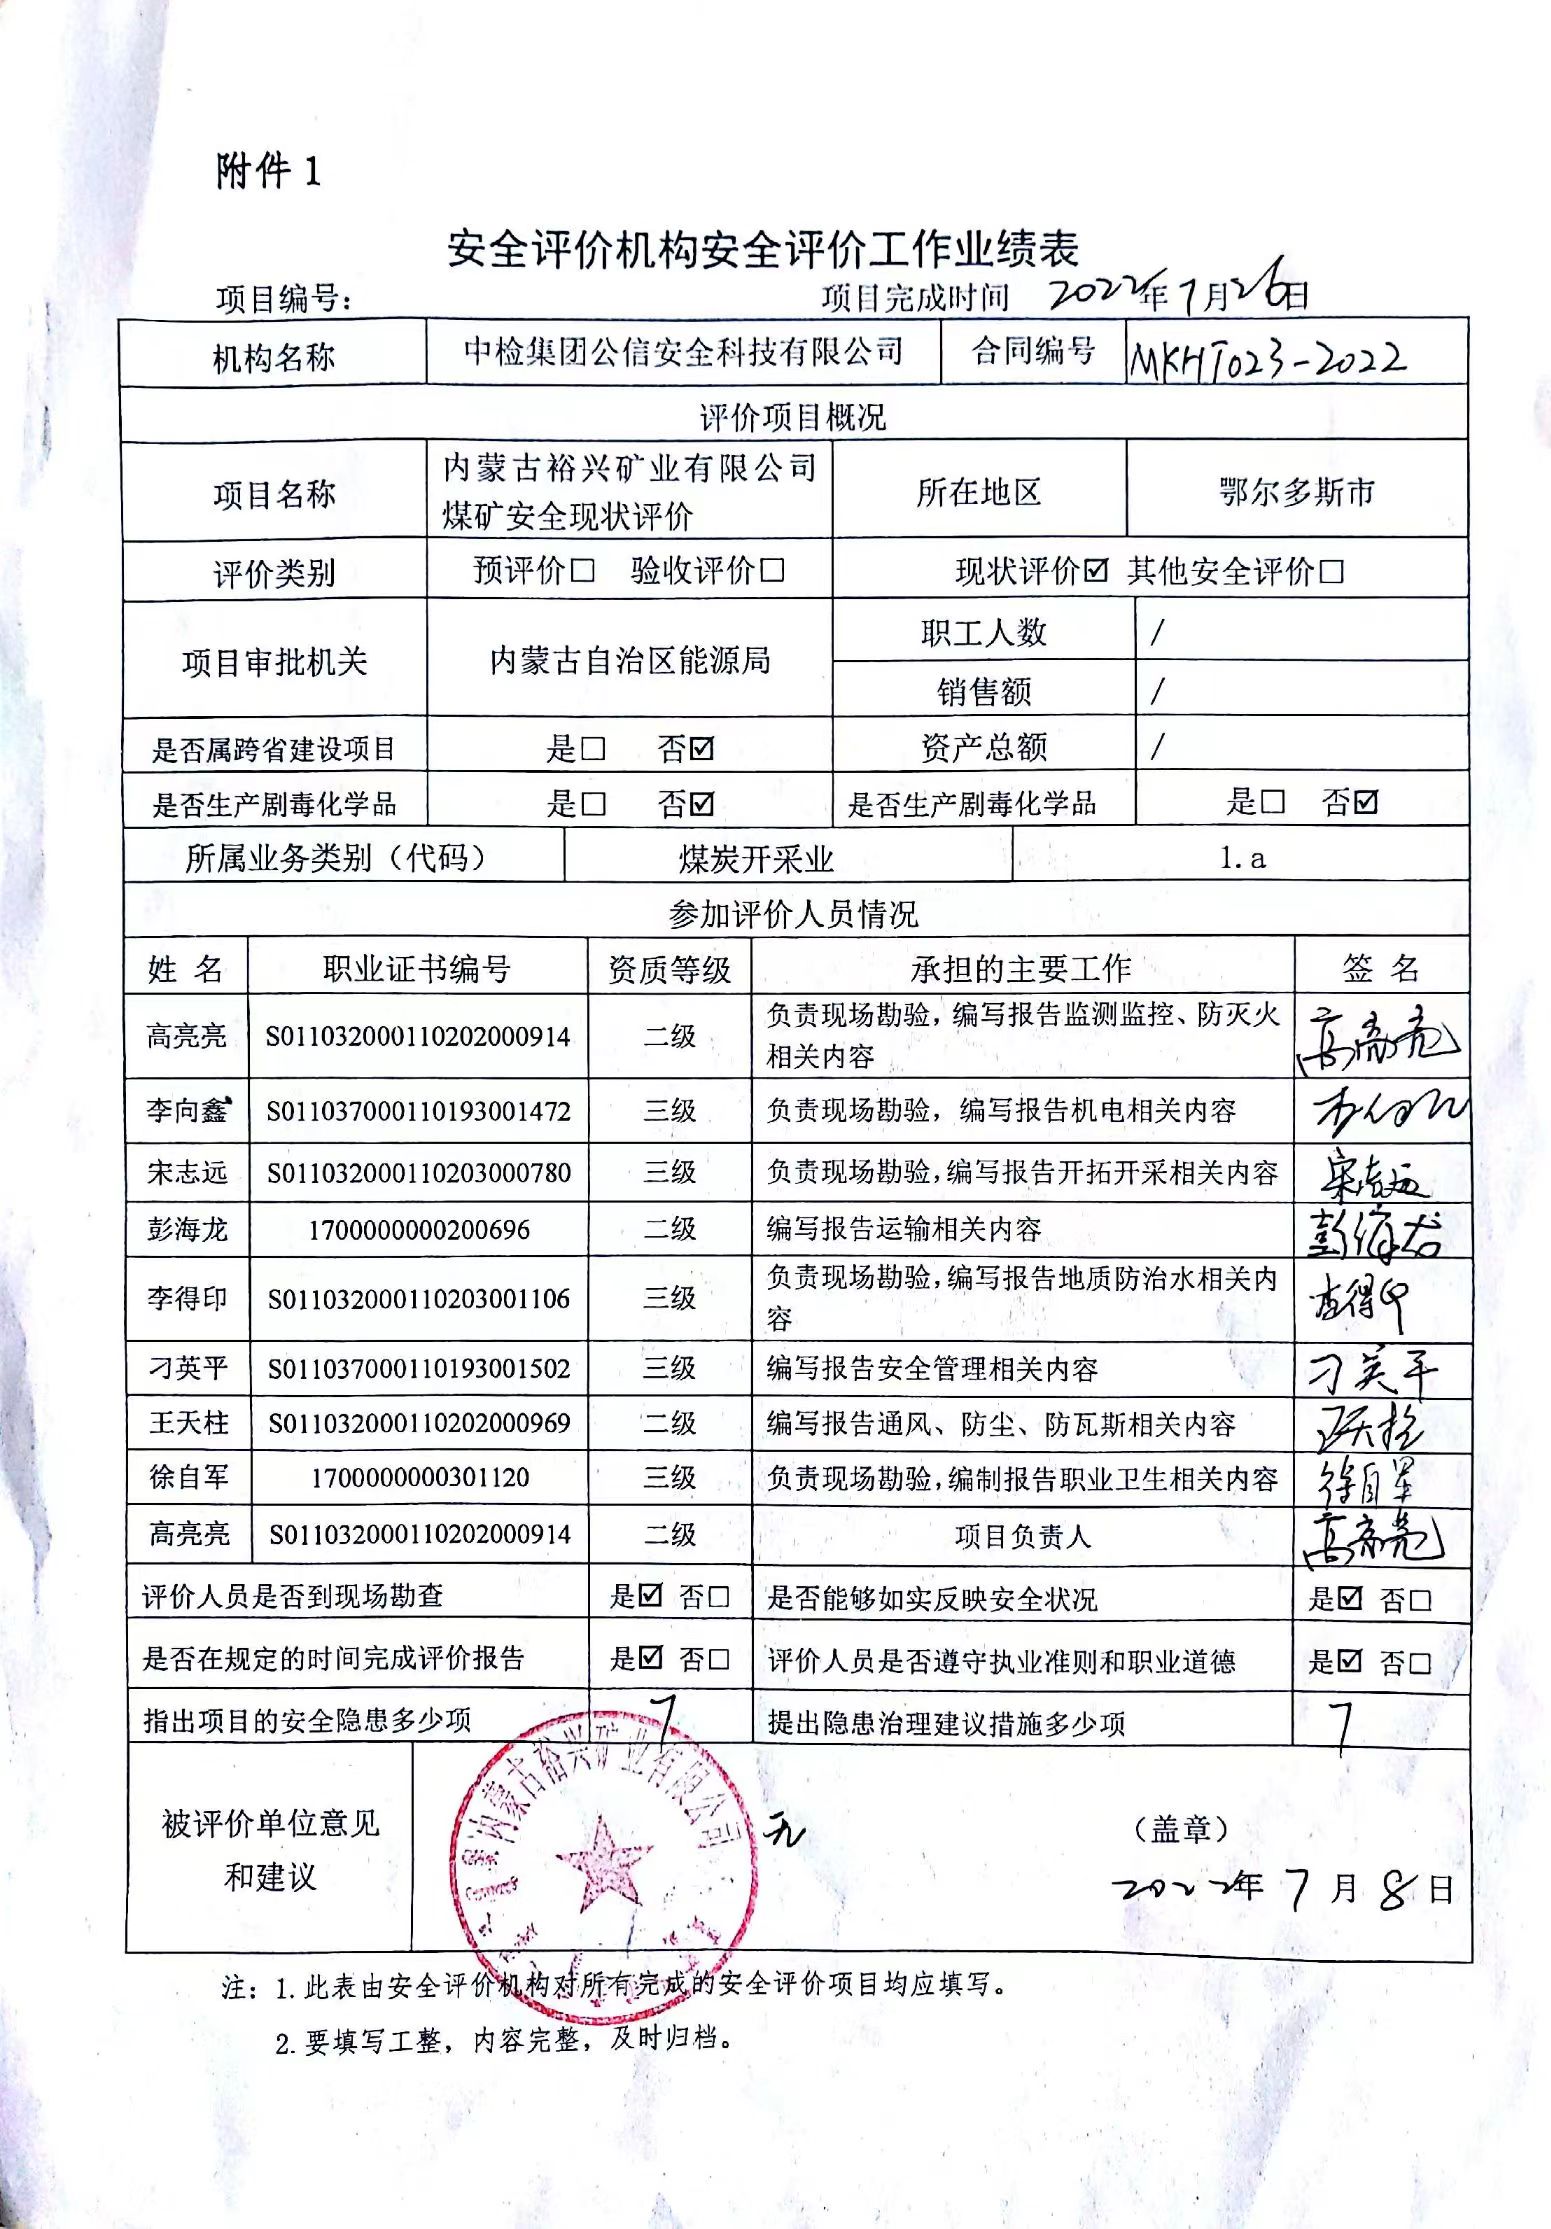 附件 1
安全评价机构安全评价工作业绩表
项目编号： 项目完成时间 2022年7月26日
机构名称 中检集团公信安全科技有限公司 合同编号 MKHT023-2022
评价项目概况
项目名称 内蒙古裕兴矿业有限公司煤矿安全现状评价 所在地区 鄂尔多斯市
评价类别 预评价☐ 验收评价☐ 现状评价☑ 其他安全评价☐
项目审批机关 内蒙古自治区能源局 职工人数 /
销售额 /
是否属跨省建设项目 是☐ 否☑ 资产总额 /
是否生产剧毒化学品 是☐ 否☑ 是否生产剧毒化学品 是☐ 否☑
所属业务类别（代码） 煤炭开采业 1.a
参加评价人员情况
姓 名 职业证书编号 资质等级 承担的主要工作 签 名
高亮亮 S011032000110202000914 二级 负责现场勘验，编写报告监测监控、防灭火相关内容 高亮亮
李向鑫 S011037000110193001472 三级 负责现场勘验，编写报告机电相关内容
宋志远 S011032000110203000780 三级 负责现场勘验，编写报告开拓开采相关内容 宋志远
彭海龙 1700000000200696 二级 编写报告运输相关内容 彭海龙
李得印 S011032000110203001106 三级 负责现场勘验，编写报告地质防治水相关内容 李得印
刁英平 S011037000110193001502 三级 编写报告安全管理相关内容 刁英平
王天柱 S011032000110202000969 二级 编写报告通风、防尘、防瓦斯相关内容 王天柱
徐自军 1700000000301120 三级 负责现场勘验，编制报告职业卫生相关内容 徐自军
高亮亮 S011032000110202000914 二级 项目负责人 高亮亮
评价人员是否到现场勘查 是☑ 否☐ 是否能够如实反映安全状况 是☑ 否☐
是否在规定的时间完成评价报告 是☑ 否☐ 评价人员是否遵守执业准则和职业道德 是☑ 否☐
指出项目的安全隐患多少项 7 提出隐患治理建议措施多少项 7
被评价单位意见和建议 无 （盖章）
内蒙古裕兴矿业有限公司
2022年7月8日
注：1.此表由安全评价机构对所有完成的安全评价项目均应填写。
2.要填写工整，内容完整，及时归档。